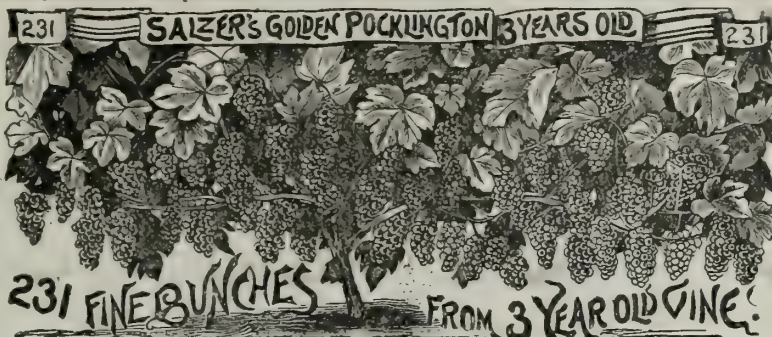 231 SALZER'S GOLDEN POCKLINGTON 3 YEARS OLD 231
231 FINE BUNCHES FROM 3 YEAR OLD VINE!